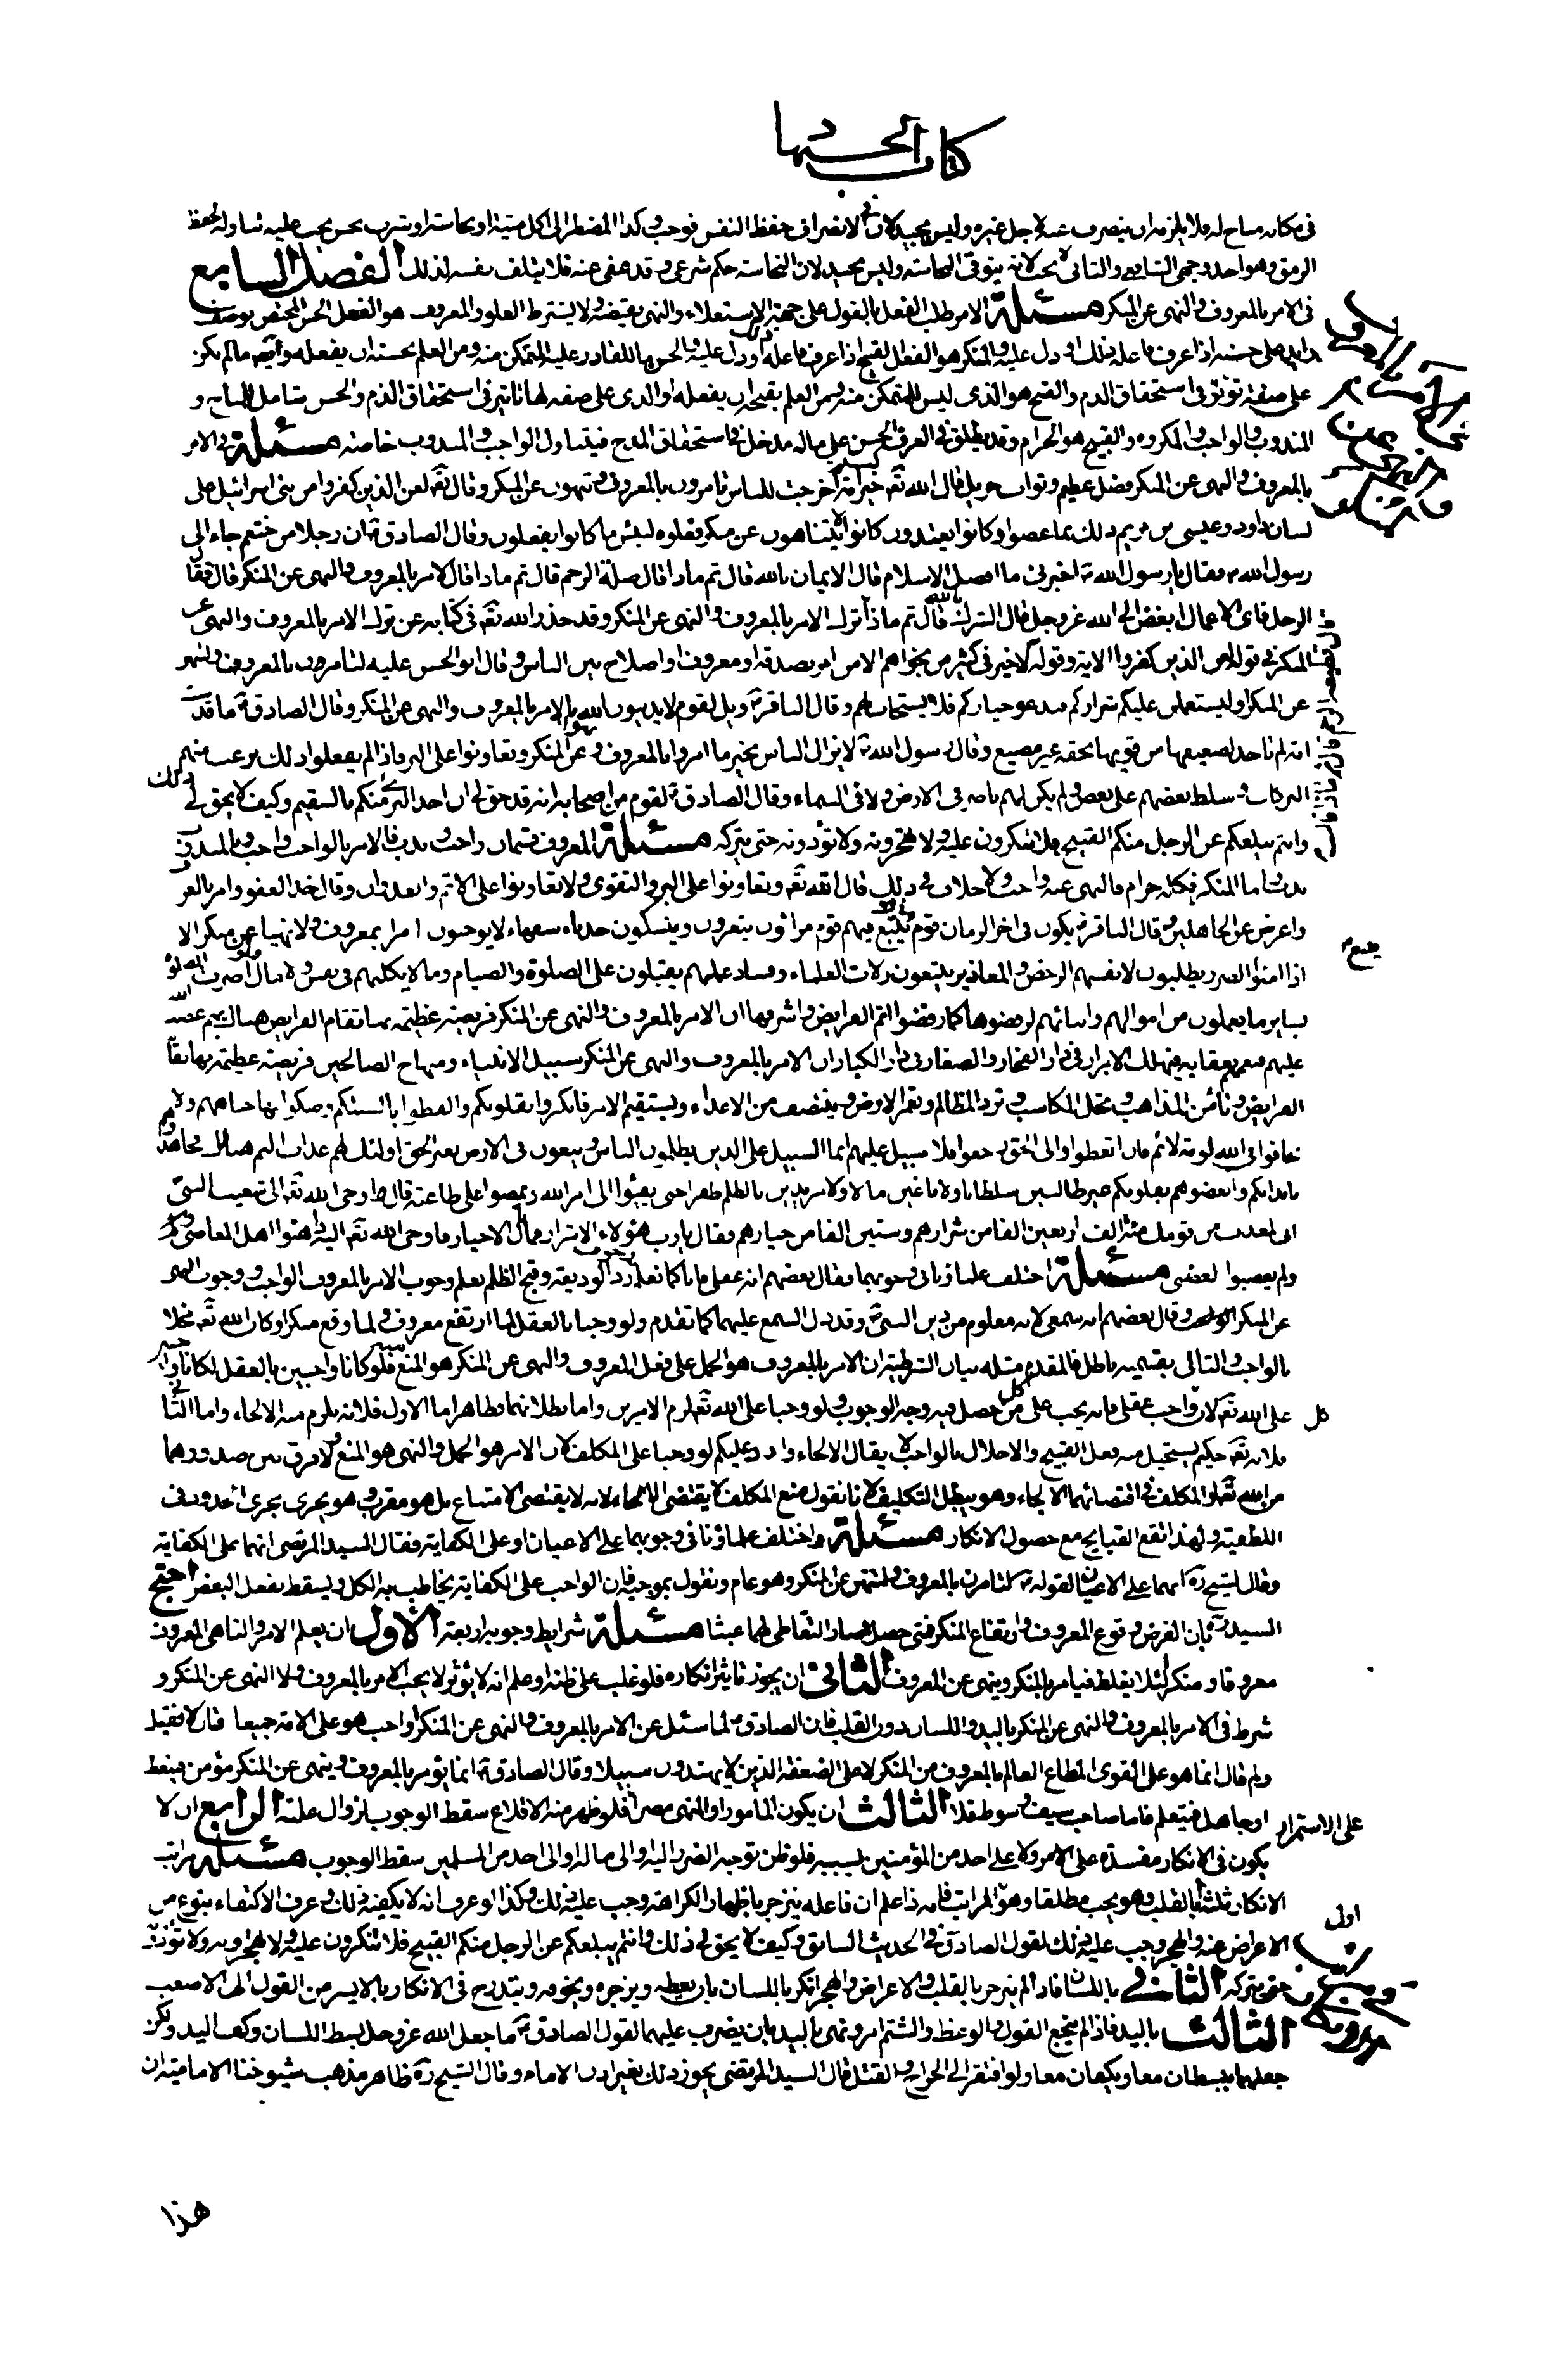 كتاب الجهاد
في مكانه مباح له فلا يلزمه ان ينصرف عنه لاجل غيره وليس بجيد لان في الانصراف حفظ النفس فوجب وكذا المضطر الى اكل ميتة او نجاسة او شرب نجس يجب عليه تناوله لحفظ
الرمق وهو احد وجهي الشافعي والثاني لا يجب لانه يتوقى النجاسة وليس بجيد لان النجاسة حكم شرعي وقد عفى عنه فلا يتلف نفسه لذلك الفصل السابع
في الامر بالمعروف والنهي عن المنكر مسئلة الامر طلب الفعل بالقول على جهة الاستعلاء والنهي نقيضه ولا يشترط العلو والمعروف هو الفعل الحسن المختص بوصف
زايد على حسنه اذا عرف فاعله ذلك او دل عليه والمنكر هو الفعل القبيح اذا عرف فاعله ذلك او دل عليه والحسن ما للقادر عليه المتمكن منه ومن العلم بحسنه ان يفعله وايضا ما لم يكن
على صفة تؤثر في استحقاق الذم والقبيح هو الذي ليس للمتمكن منه ومن العلم بقبحه ان يفعله او الذي على صفة لها تاثير في استحقاق الذم والحسن شامل للمباح و
المندوب والواجب والمكروه والقبيح هو الحرام وقد يطلق في العرف الحسن على ماله مدخل في استحقاق المدح فيتناول الواجب والمندوب خاصة مسئلة في الامر
بالمعروف والنهي عن المنكر فضل عظيم وثواب جزيل قال الله تع كنتم خير امة اخرجت للناس تامرون بالمعروف وتنهون عن المنكر وقال تع لعن الذين كفروا من بني اسرائيل على
لسان داود وعيسى بن مريم ذلك بما عصوا وكانوا يعتدون كانوا لا يتناهون عن منكر فعلوه لبئس ما كانوا يفعلون وقال الصادق ع ان رجلا من خثعم جاء الى
رسول الله ص فقال يا رسول الله ص اخبرني ما افضل الاسلام قال الايمان بالله قال ثم ماذا قال صلة الرحم قال ثم ماذا قال الامر بالمعروف والنهي عن المنكر قال فقال
الرجل فاي الاعمال ابغض الى الله عز وجل قال الشرك بالله قال ثم ماذا قال ترك الامر بالمعروف والنهي عن المنكر وقد حذر الله تع في كتابه عن ترك الامر بالمعروف والنهي عن
المنكر في قوله لعن الذين كفروا الاية وقوله لا خير في كثير من نجواهم الا من امر بصدقة او معروف او اصلاح بين الناس وقال ابو الحسن عليه لتامرون بالمعروف ولتنهن
عن المنكر او ليستعملن عليكم شراركم فيدعو خياركم فلا يستجاب لهم وقال الباقر ع ويل لقوم لا يدينون الله بالامر بالمعروف والنهي عن المنكر وقال الصادق ع ما قدست
امة لم تاخذ لضعيفها من قويها بحقه غير مضيع وقال رسول الله ص لا يزال الناس بخير ما امروا بالمعروف ونهوا عن المنكر وتعاونوا على البر فاذا لم يفعلوا ذلك نزعت منهم
البركات وسلط بعضهم على بعض ولم يكن لهم ناصر في الارض ولا في السماء وقال الصادق ع لقوم من اصحابه انه قد حق لي ان اخذ البريء منكم بالسقيم وكيف لا يحق لي ذلك
وانتم يبلغكم عن الرجل منكم القبيح فلا تنكرون عليه ولا تهجرونه ولا تؤذونه حتى يتركه مسئلة المعروف قسمان واجب وندب فالامر بالواجب واجب وبالمندوب
ندب واما المنكر فكله حرام فالنهي عنه واجب ولا خلاف في ذلك قال الله تع وتعاونوا على البر والتقوى ولا تعاونوا على الاثم والعدوان وقال خذ العفو وامر بالعرف
واعرض عن الجاهلين وقال الباقر ع يكون في اخر الزمان قوم يتبع فيهم قوم مراؤن يتقرون ويتنسكون حدثاء سفهاء لا يوجبون امرا بمعروف ولا نهيا عن منكر الا
اذا امنوا الضرر يطلبون لانفسهم الرخص والمعاذير يتبعون زلات العلماء وفساد علمهم يقبلون على الصلوة والصيام وما لا يكلمهم في نفس ولا مال ولو اضرت الصلوة
بساير ما يعملون من اموالهم وابدانهم لرفضوها كما رفضوا اتم الفرايض واشرفها ان الامر بالمعروف والنهي عن المنكر فريضة عظيمة بها تقام الفرايض هنالك يتم غضب الله
عليهم فيعمهم بعقابه فيهلك الابرار في دار الفجار والصغار في دار الكبار ان الامر بالمعروف والنهي عن المنكر سبيل الانبياء ومنهاج الصالحين فريضة عظيمة بها تقام
الفرايض وتأمن المذاهب وتحل المكاسب وترد المظالم وتعمر الارض وينتصف من الاعداء ويستقيم الامر فانكروا بقلوبكم والفظوا بالسنتكم وصكوا بها جباههم ولا
تخافوا في الله لومة لائم فان اتعظوا والى الحق رجعوا فلا سبيل عليهم انما السبيل على الذين يظلمون الناس ويبغون في الارض بغير الحق اولئك لهم عذاب اليم هنالك فجاهدوهم
بابدانكم وابغضوهم بقلوبكم غير طالبين سلطانا ولا باغين مالا ولا مريدين بالظلم ظفرا حتى يفيئوا الى امر الله ويمضوا على طاعته قال واوحى الله تع الى شعيب النبي
اني معذب من قومك مئة الف اربعين الفا من شرارهم وستين الفا من خيارهم فقال يا رب هؤلاء الاشرار فما بال الاخيار فاوحى الله تع اليه داهنوا اهل المعاصي
ولم يغضبوا لغضبي مسئلة اختلف علماؤنا في وجوبهما فقال بعضهم انه عقلي فانا كما نعلم وجوب رد الوديعة وقبح الظلم نعلم وجوب الامر بالمعروف الواجب ووجوب النهي
عن المنكر وقال بعضهم انه سمعي لانه معلوم من دين النبي ص وقد دل السمع عليهما كما تقدم ولو وجبا بالعقل لما ارتفع معروف ولما وقع منكر او كان الله تع مخلا
بالواجب والتالي بقسميه باطل فالمقدم مثله بيان الشرطية ان الامر بالمعروف هو الحمل على فعل المعروف والنهي عن المنكر هو المنع منه فلو كانا واجبين بالعقل لكانا واجبين
على الله تع لان كل واجب عقلي فانه يجب على كل من حصل فيه وجه الوجوب ولو وجبا على الله تع لزم الامرين واما بطلانهما فظاهر اما الاول فلانه يلزم منه الالجاء واما الثاني
فلانه تع حكيم يستحيل منه فعل القبيح والاخلال بالواجب لا يقال الالجاء وارد عليكم لو وجبا على المكلف لان الامر هو الحمل والنهي هو المنع ولا فرق بين صدورهما
من الله تع او المكلف في اقتضائهما الالجاء وهو يبطل التكليف لانا نقول منع المكلف لا يقتضي الالجاء لانه لا يقتضي الامتناع بل هو مقرب وهو يجري مجرى الحدود في
اللطفية ولهذا تقع القبايح مع حصول الانكار مسئلة واختلف علماؤنا في وجوبهما على الاعيان او على الكفاية فقال السيد المرتضى انهما على الكفاية
وقال الشيخ ره انهما على الاعيان لقوله ع لتامرن بالمعروف ولتنهن عن المنكر وهو عام ونقول بموجبه فان الواجب على الكفاية يخاطب به الكل ويسقط بفعل البعض احتج
السيد ره بان الغرض وقوع المعروف وارتفاع المنكر فمتى حصلا صار التعاطي لهما عبثا مسئلة شرايط وجوبه اربعة الاول ان يعلم الامر والناهي المعروف
معروفا ومنكر لئلا يغلط فيامر بالمنكر وينهى عن المعروف الثاني ان يجوز تاثير انكاره فلو غلب على ظنه او علم انه لا يؤثر لا يجب الامر بالمعروف ولا النهي عن المنكر و
شرط في الامر بالمعروف والنهي عن المنكر باليد واللسان دون القلب فان الصادق ع لما سئل عن الامر بالمعروف والنهي عن المنكر اواجب هو على الامة جميعا قال لا فقيل
ولم قال انما هو على القوي المطاع العالم بالمعروف من المنكر لا على الضعفة الذين لا يهتدون سبيلا وقال الصادق ع انما يؤمر بالمعروف وينهى عن المنكر مؤمن فيتعظ
او جاهل فيتعلم فاما صاحب سيف وسوط فلا الثالث ان يكون المامور او المنهي مصرا على الاستمرار فلو ظهر منه الاقلاع سقط الوجوب لزوال علته الرابع ان لا
يكون في الانكار مفسدة على الامر ولا على احد من المؤمنين بسببه فلو ظن توجه الضرر اليه او الى ماله او الى احد من المسلمين سقط الوجوب مسئلة مراتب
الانكار ثلثة بالقلب وهو يجب مطلقا وهو اول المراتب فانه اذا علم ان فاعله ينزجر باظهار الكراهة وجب عليه ذلك وكذا لو عرف انه لا يكفيه ذلك وعرف الاكتفاء بنوع من
الاعراض عنه والهجر وجب عليه ذلك لقول الصادق ع في الحديث السابق وكيف لا يحق لي ذلك وانتم يبلغكم عن الرجل منكم القبيح فلا تنكرون عليه ولا تهجرونه ولا تؤذونه
حتى يتركه الثاني باللسان فاذا لم ينزجر بالقلب والاعراض والهجر انكر باللسان بان يعظه ويزجره ويخوفه ويتدرج في الانكار بالايسر من القول الى الاصعب
الثالث باليد فاذا لم ينجع القول والوعظ والشتم امر ونهى باليد بان يضرب عليهما لقول الصادق ع ما جعل الله عز وجل بسط اللسان وكف اليد ولكن
جعلهما يبسطان معا ويكفان معا ولو افتقر الى الجراح والقتل قال السيد المرتضى يجوز ذلك بغير اذن الامام وقال الشيخ ره ظاهر مذهب شيوخنا الامامية ان
هذا